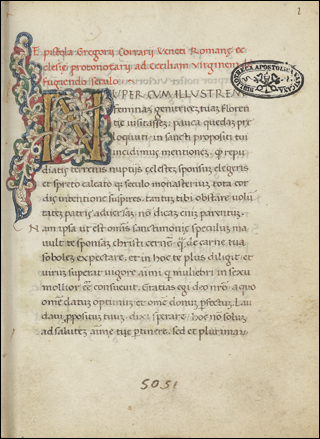 2
Epistola Gregorii Corrarii Veneti Romanę ec
clesię protonotarii ad Ceciliam Virginem de
fugiendo seculo
BIBLIOTHECA APOSTOLICA VATICANA
NUPER CUM ILLUSTREM
feminā genitricē tuā Floren
tię visitassē; pauca quedā pre
loquuti in sancti propositi tui
incidimus mentionē; q repu
diatis terrenis nuptiis celestē sponsū elegeris
et spreto calcato q; seculo monasteriū tota cor
dis intentione suspires. tantū tibi obstare volun
tatē patris adversā. nō dicā eni parentum.
Nam ipsa ut est omīs sanctimonię speculum ma
vult te sponsā christi cerni. q de carne tua
soboles expectare. et in hoc te plus diligit et
virū superat vigore aīmi q muliebri in sexu
mollior eē consuevit. Gratias egi deo nrō. a quo
omē datū optimū et omē donū pfectū. Lau
davi ppositum tuū. dixi sperare hoc nō solū
ad salutē aīmę tuę ptinere. sed et plurimar
5051